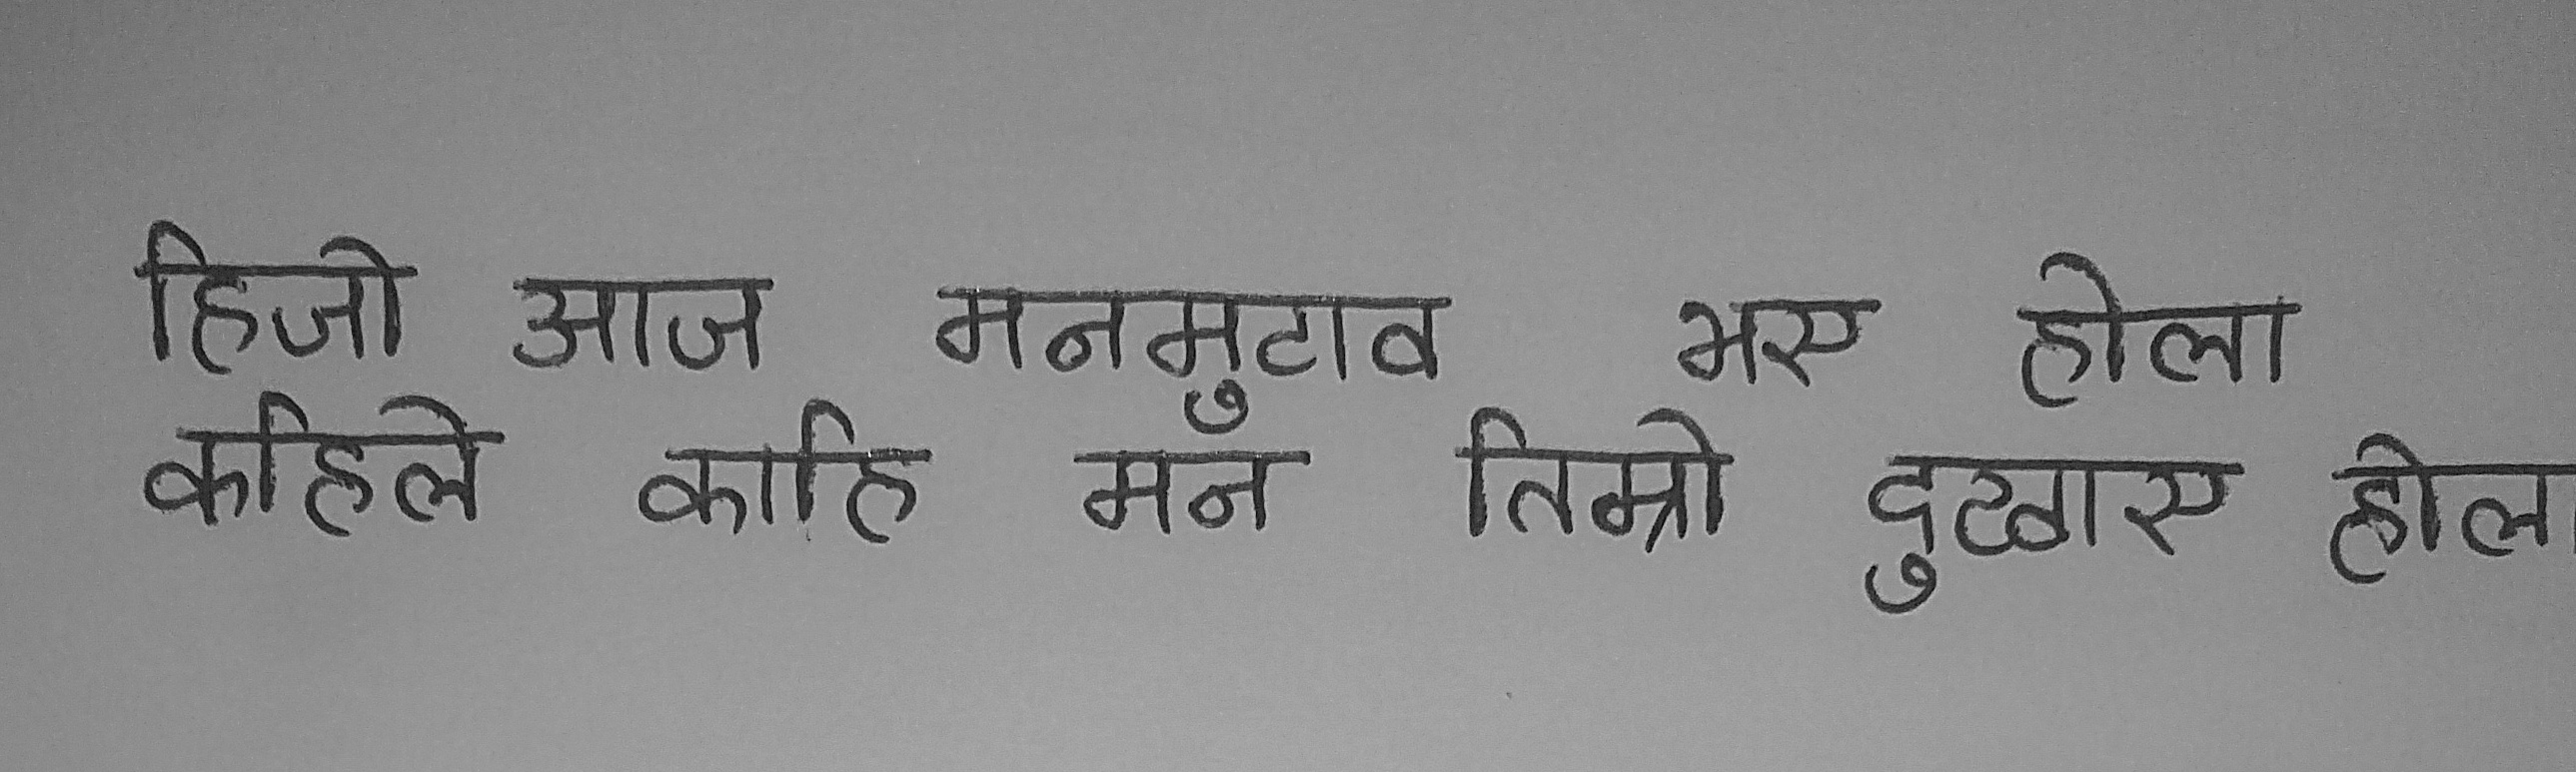 हिजो आज मनमुटाव भए होला
कहिले काहि मन तिम्रो दुखाए होला